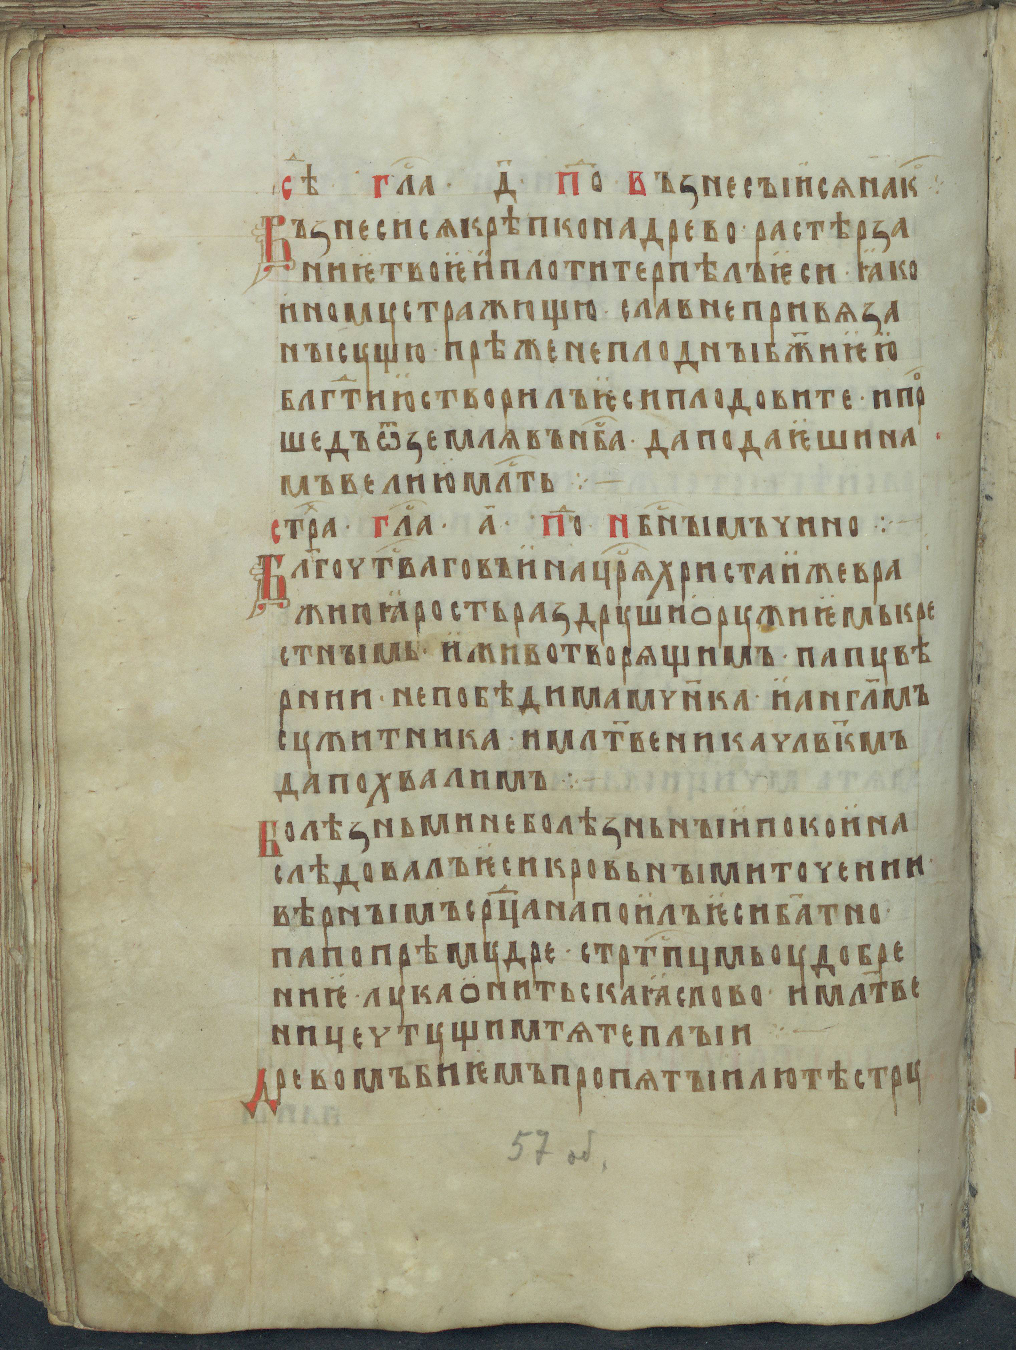 сѣ҃ · гл҃а · д҃ · по҃ · възнесъıисѧнак
Възнесисѧкрѣпконадрево · растѣрза
ниѥтвоѥиплотитерпѣлъѥси · ꙗко
иномꙋстражющю · славнепривѧза
нъıсꙋщю · прѣженеплоднъıбж҃иѥю
блгт҃июстворилъѥсиплодовите · ипрⷪ
шедъѿземлѧвънб҃а · даподаѥшина
мъвелиюмл҃ть :·—
стра · гл҃а · а҃ · по҃ нб҃нъıмъчино :·
Бл҃гоутв҃аговъинацр҃ѧхристаижевра
жиюꙗростьраздрꙋшиорꙋжиѥмькре
стнъıмь · иживотворѧщимъ · папꙋвѣ
рнии · непобѣдимамчн҃ка · иангл҃мъ
сꙋжитника · имлт҃веникачл҃вкмъ
дапохвалимъ :·—
Болѣзньминеболѣзньнъıипокоина
слѣдовалъѥсикровьнъıмиточении ·
вѣрнъıмъсрц҃анапоилъѥсиба҃тно ·
папопрѣмꙋдре · стрт҃пцмьоудобре
ниѥ · лꙋкаонитьскаꙗслово · имлт҃ве
ничечтꙋщимтѧтеплъıи :·—
Древомъбиѥмъпропѧтъıилютѣстрц
57 об.